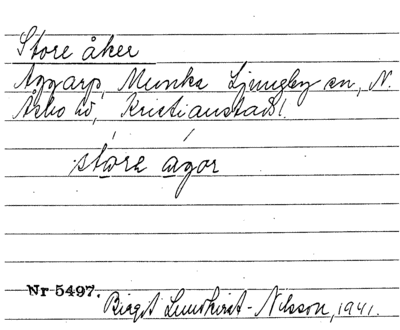 Store åker
Aggarp, Munka Ljungby sn, N.
Åsbo hd, Kristianstads l.
store agor
Nr 5497. Birgit Lundkvist-Nilsson, 1941.